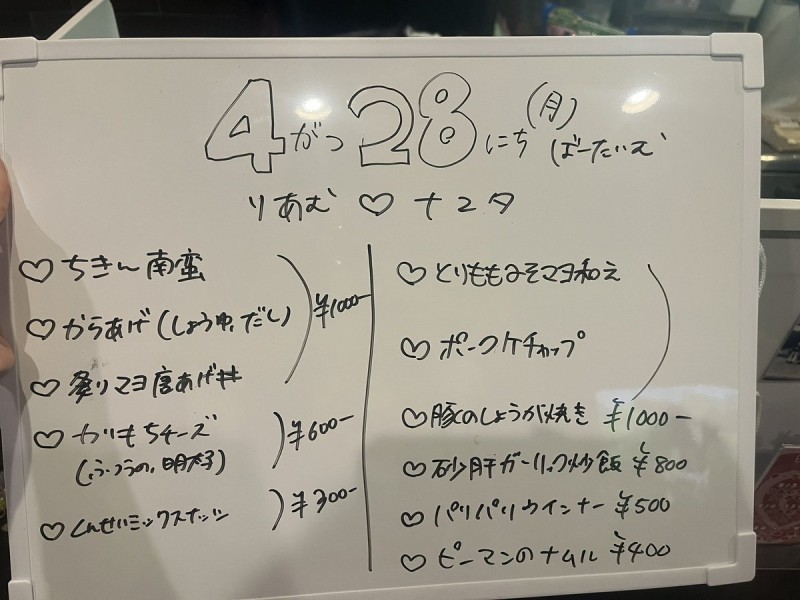 4がつ28にち(月)
ばーたいむ
りあむ♡ナユタ
♡ちきん南蛮
♡からあげ(しょうゆ、だし)
¥1000-
マヨ唐あげ丼
♡かりもちチーズ
(ふつうの、明太子)
¥600-
♡くんせいミックスナッツ
¥300-
♡とりももみそマヨ和え
♡ポークケチャップ
♡豚のしょうが焼き ¥1000-
♡砂肝ガーリック炒飯 ¥800
♡パリパリウインナー ¥500
♡ピーマンのナムル ¥400